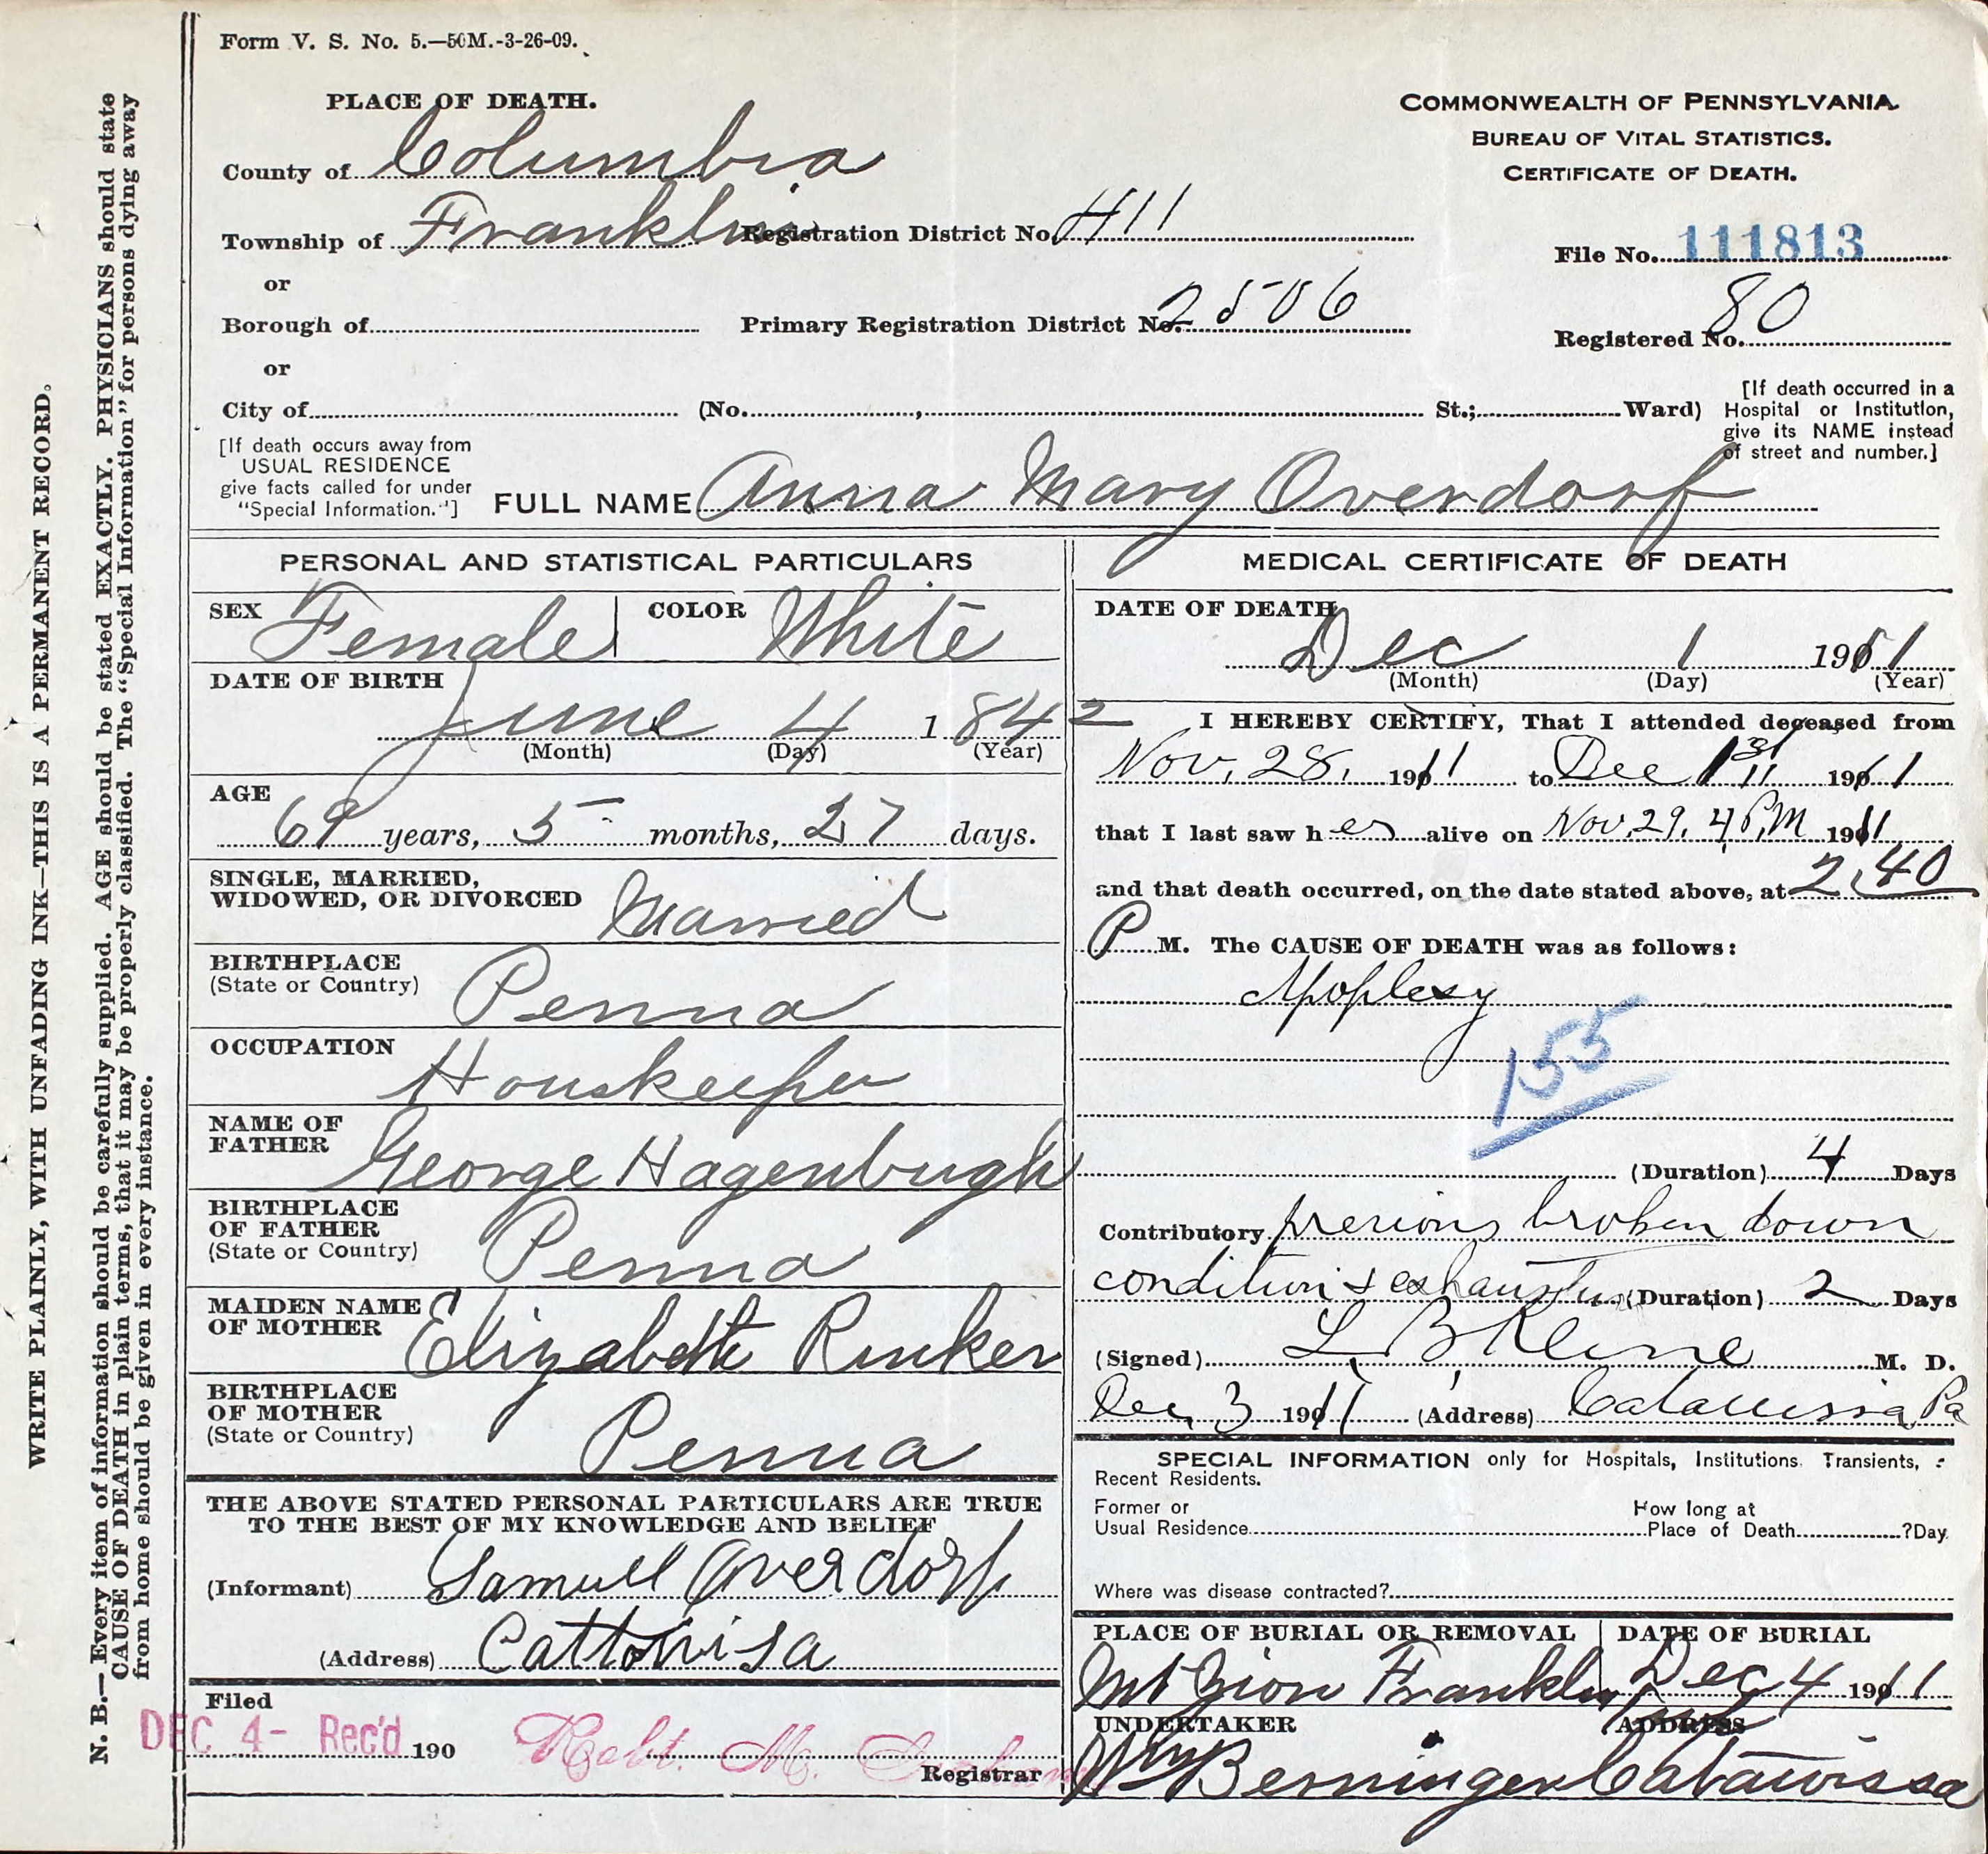 Form V. S. No. 5.—50M.-3-26-09.
PLACE OF DEATH.
County of Columbia
Township of Franklin Registration District No. 411
or
Borough of Primary Registration District No. 2506
or
City of (No. , St.; Ward)
[If death occurs away from
USUAL RESIDENCE
give facts called for under
"Special Information."]
COMMONWEALTH OF PENNSYLVANIA
BUREAU OF VITAL STATISTICS.
CERTIFICATE OF DEATH.
File No. 111813
Registered No. 80
[If death occurred in a
Hospital or Institution,
give its NAME instead
of street and number.]
FULL NAME Anna Mary Overdorf
PERSONAL AND STATISTICAL PARTICULARS
SEX Female COLOR White
DATE OF BIRTH
June 4 1842
(Month) (Day) (Year)
AGE
69 years, 5 months, 27 days.
SINGLE, MARRIED,
WIDOWED, OR DIVORCED Married
BIRTHPLACE
(State or Country) Penna
OCCUPATION
Houskeeper
NAME OF
FATHER George Hagenbugh
BIRTHPLACE
OF FATHER
(State or Country) Penna
MAIDEN NAME
OF MOTHER Elizabeth Runker
BIRTHPLACE
OF MOTHER
(State or Country) Penna
THE ABOVE STATED PERSONAL PARTICULARS ARE TRUE
TO THE BEST OF MY KNOWLEDGE AND BELIEF
(Informant) Samuel Overdorf
(Address) Cattowisa
Filed
DEC 4- Rec'd 190 Robt. M.
Registrar
MEDICAL CERTIFICATE OF DEATH
DATE OF DEATH
Dec 1 1911
(Month) (Day) (Year)
I HEREBY CERTIFY, That I attended deceased from
Nov. 28. 1911 to Dec 1st 11 1911
that I last saw her alive on Nov. 29. 4 P.M 1911
and that death occurred, on the date stated above, at 2,40
P M. The CAUSE OF DEATH was as follows:
Apoplexy
155
(Duration) 4 Days
Contributory previous broken down
condition & exhaustion (Duration) 2 Days
(Signed) L. B. Kline M. D.
Dec 3 1911 (Address) Catawissa Pa
SPECIAL INFORMATION only for Hospitals, Institutions, Transients,
Recent Residents.
Former or
Usual Residence
How long at
Place of Death ?Day
Where was disease contracted?
PLACE OF BURIAL OR REMOVAL DATE OF BURIAL
Mt Zion Franklin Dec 4 1911
UNDERTAKER ADDRESS
Wm Berninger Catawissa
WRITE PLAINLY, WITH UNFADING INK—THIS IS A PERMANENT RECORD.
N. B.—Every item of information should be carefully supplied. AGE should be stated EXACTLY. PHYSICIANS should state
CAUSE OF DEATH in plain terms, that it may be properly classified. The "Special Information" for persons dying away
from home should be given in every instance.